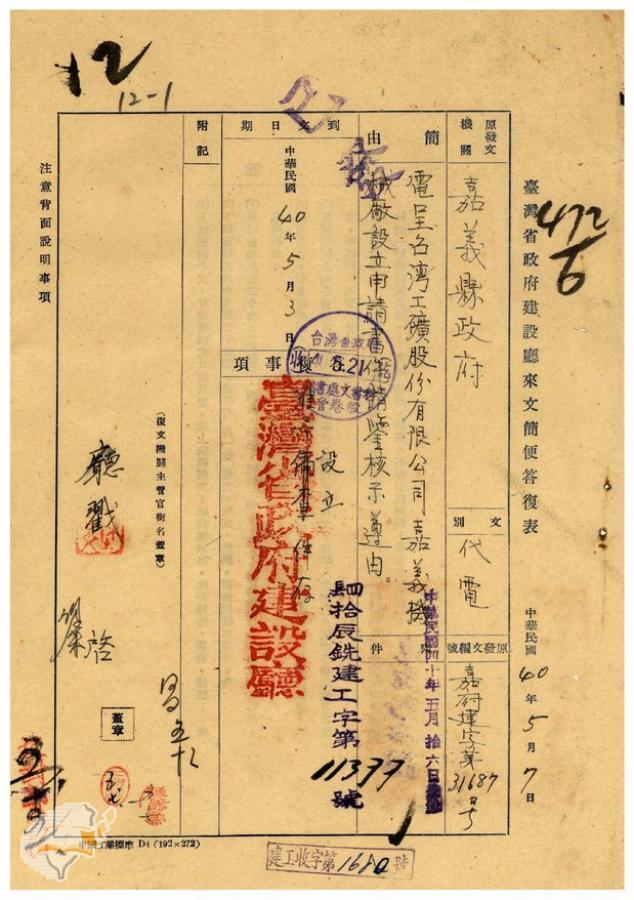 12
12-1
472
6
臺灣省政府建設廳來文簡便答復表
中華民國40年5月7日
原發文機關
嘉義縣政府
文別
代電
原發文編號
嘉府建字第31687号
簡由
電呈台湾工礦股份有限公司嘉義機
械廠設立申請書件請鑒核示遵由。
附件
中華民國四十年五月拾六日
肆拾辰銑建工字第
11377
號
到文日期
中華民國40年5月3日
答複事項
准
設立
件存
臺灣省政府建設廳
附記
(復文機關主管官銜名蓋章)
廳戳
啓
蓋章
注意背面說明事項
中國工業標準 D4 (192×272)
建工收字第1680號